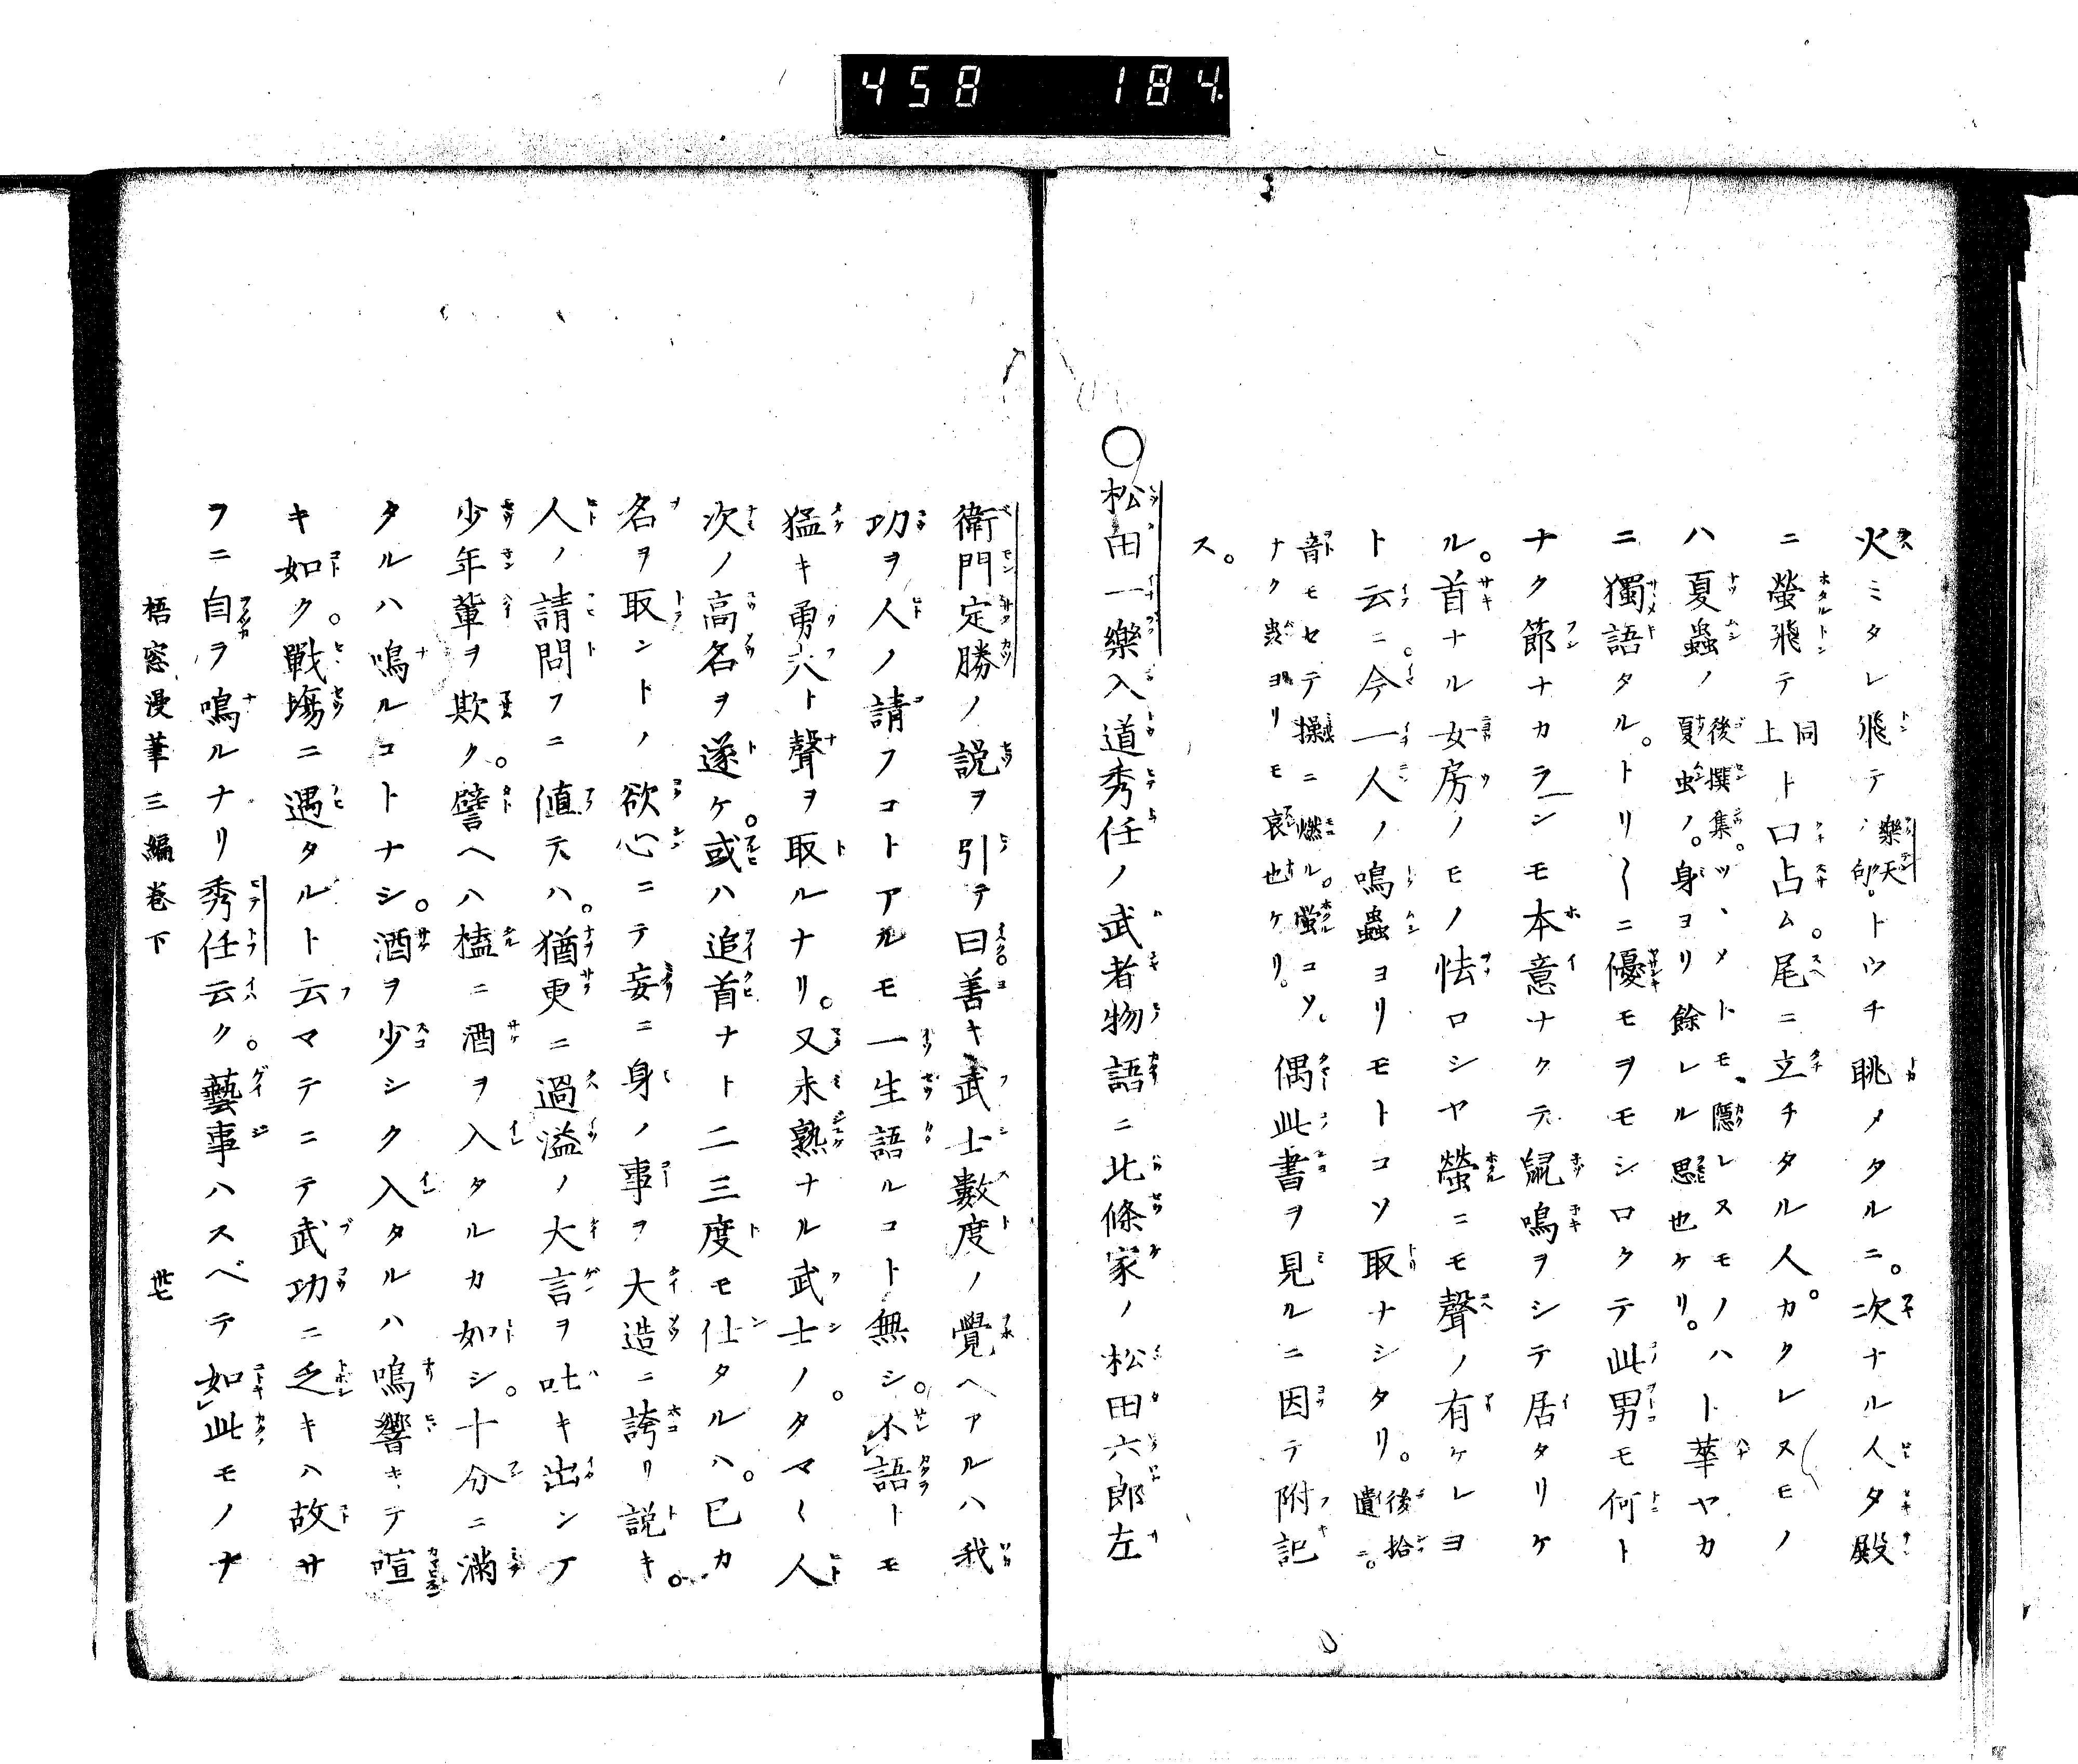 458 184.
火ミタレ飛テ樂天句。トウチ眺メタルニ。次ナル人夕殿
ニ螢飛テ同上ト口占ム。尾ニ立チタル人カ。クレヌモノ
ハ夏蟲ノ後撰集。ツヽメトモ、隱レヌモノハ夏虫ノ。身ヨリ餘レル思也ケリ。ト華ヤカ
ニ獨語タル。トリ〱ニ優モヲモシロクテ此男モ何ト
ナク節ナカランモ本意ナクテ鼠鳴ヲシテ居タリケ
ル。首ナル女房ノモノ怯ロシヤ螢ニモ聲ノ有ケレヨ
ト云ニ。今一人ノ鳴蟲ヨリモトコソ取ナシタリ。後拾遺ニ。
音モセテ操ニ燃ル。螢コソ。ナク蟲ヨリモ哀也ケリ。偶此書ヲ見ルニ因テ附記
ス。
〇松田一樂入道秀任ノ武者物語ニ北條家ノ松田六郎左
衛門定勝ノ説ヲ引テ曰善キ武士數度ノ覺ヘアルハ我
功ヲ人ノ請フコトアルモ一生語ルコト無シ。不語トモ
猛キ勇ト聲ヲ取ルナリ。又未熟ナル武士ノ。タマ〱人
次ノ高名ヲ遂ケ。或ハ追首ナト二三度モ仕タルハ。已カ
名ヲ取ントノ欲心ニテ妄ニ身ノ事ヲ大造ニ誇リ説キ。
人ノ請問フニ値テハ。猶更ニ過溢ノ大言ヲ吐キ出ンア
少年輩ヲ欺ク。譬ヘハ榼ニ酒ヲ入タルカ如シ。十分ニ滿
タルハ鳴ルコトナシ。酒ヲ少シク入タルハ鳴響キテ喧
キ如ク。戰塲ニ遇タルト云マテニテ武功ニ乏キハ故サ
フニ自ヲ鳴ルナリ秀任云ク。藝事ハスベテ如此モノナ
梧窓漫筆三編巻下 卅七